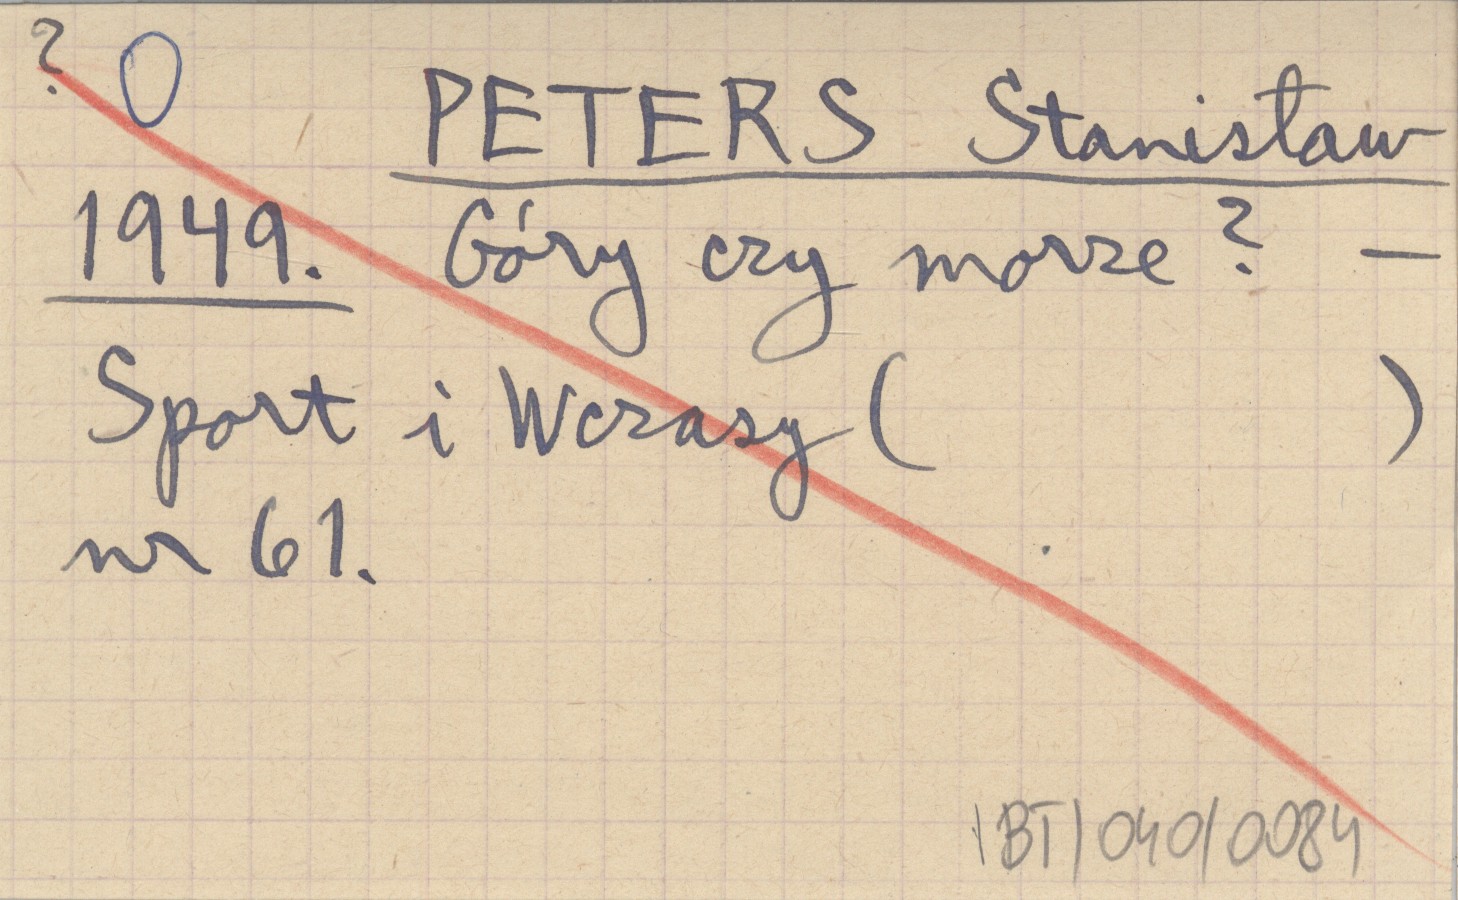 ? O
PETERS Stanisław
1949. Góry czy morze? —
Sport i Wczasy ( )
nr 61.
IBT/040/0084